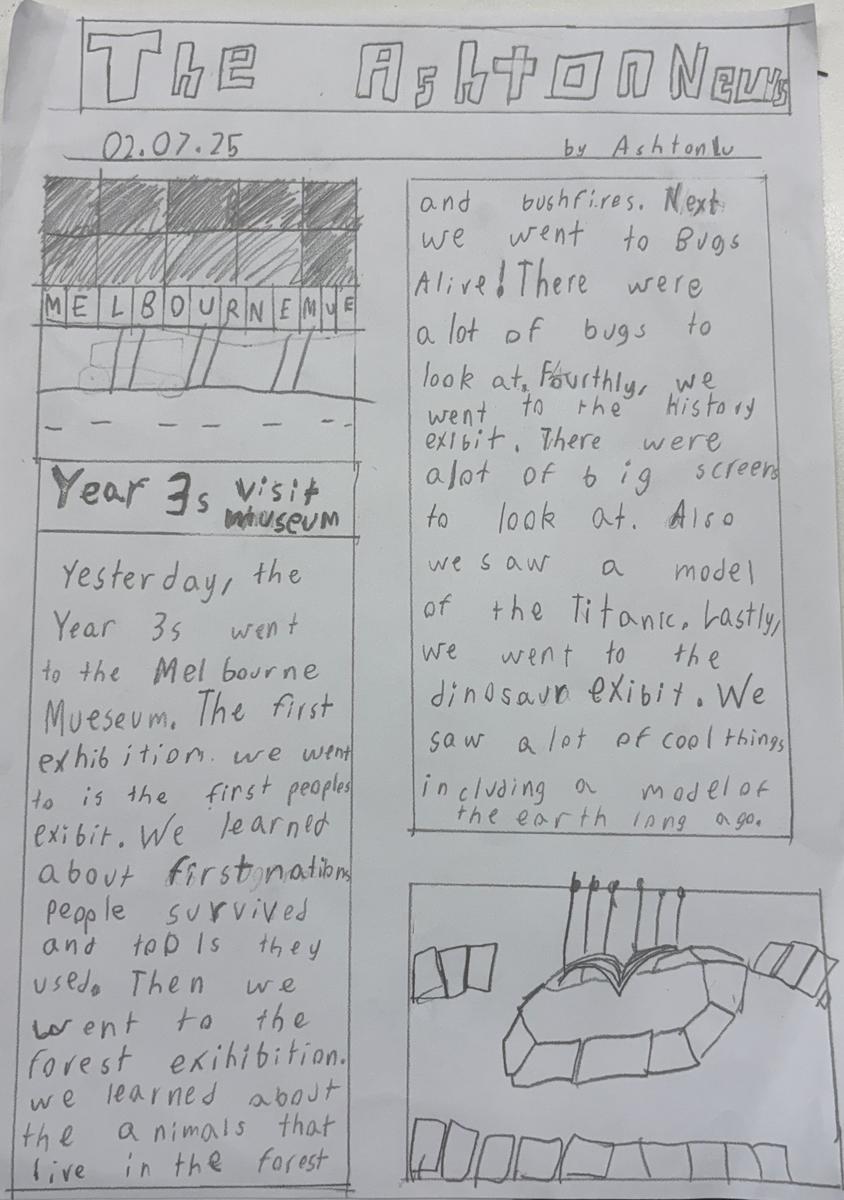 The Ashton News
02.07.25
by Ashton Lu
MELBOURNE MUE
Year 3s visit
museum
Yesterday, the
Year 3s went
to the Melbourne
Mueseum. The first
exhibition we went
to is the first peoples
exibit. We learned
about first nations
people survived
and tools they
used. Then we
went to the
forest exihibition.
we learned about
the animals that
live in the forest
and bushfires. Next
we went to Bugs
Alive! There were
a lot of bugs to
look at. Fourthly, we
went to the history
exibit. There were
alot of big screens
to look at. Also
we saw a model
of the Titanic. Lastly,
we went to the
dinosaur exibit. We
saw a lot of cool things
including a model of
the earth long ago.